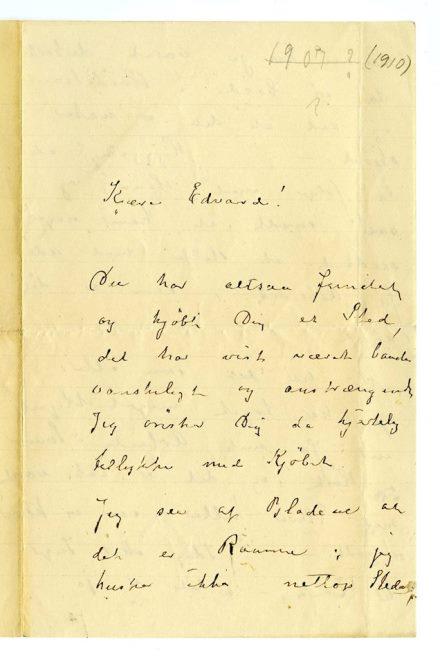 1907? (1910)
?
Kjære Edvard!
Du har altsaa funnet
og kjøbt Dig et Sted,
det har vist været baade
vanskeligt og anstrængende
Jeg ønsker Dig da hjertelig
tillykke med Kjøbet.
Jeg ser af Bladene at
det er Ramme; jeg
husker ikke netop Stedet